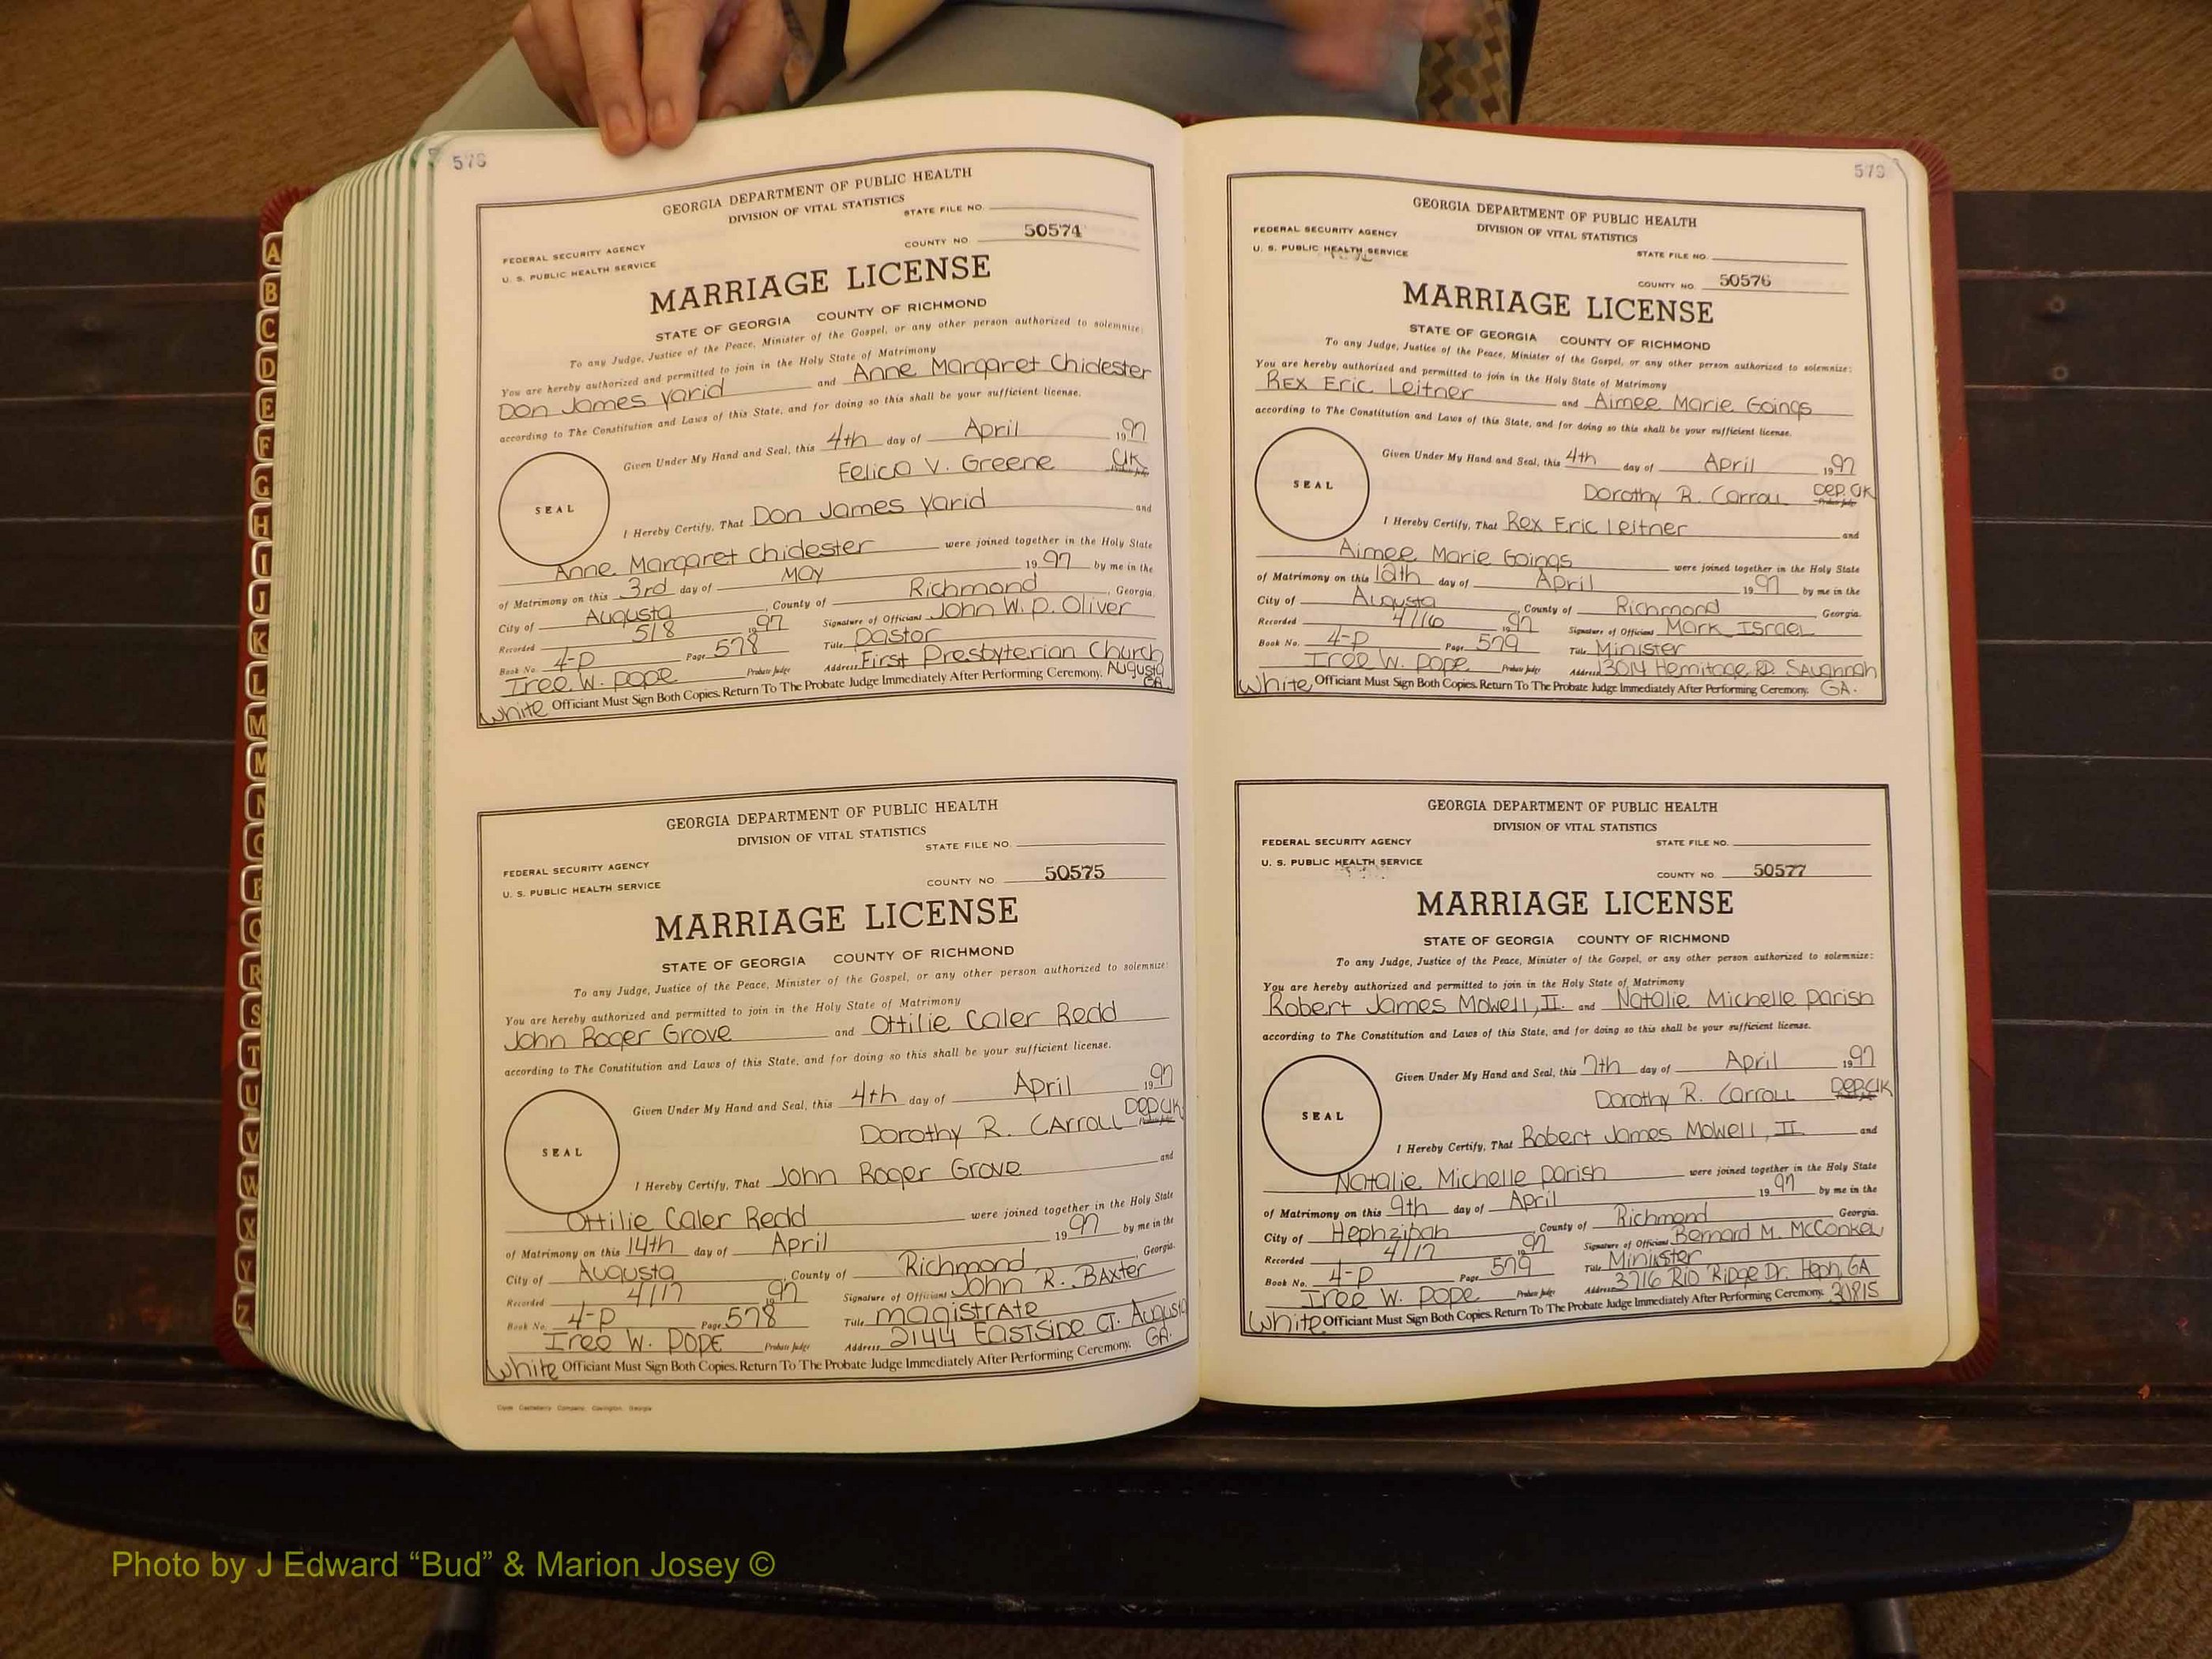 578
GEORGIA DEPARTMENT OF PUBLIC HEALTH
DIVISION OF VITAL STATISTICS
STATE FILE NO.
FEDERAL SECURITY AGENCY
COUNTY NO 50574
U. S. PUBLIC HEALTH SERVICE
MARRIAGE LICENSE
STATE OF GEORGIA COUNTY OF RICHMOND
To any Judge, Justice of the Peace, Minister of the Gospel, or any other person authorized to solemnize:
You are hereby authorized and permitted to join in the Holy State of Matrimony
Don James Varid and Anne Margaret Chidester
according to The Constitution and Laws of this State, and for doing so this shall be your sufficient license.
Given Under My Hand and Seal, this 4th day of April 1997
Felicia V. Greene Clk
Probate Judge
SEAL
I Hereby Certify, That Don James Varid and
Anne Margaret Chidester were joined together in the Holy State
of Matrimony on this 3rd day of May 1997 by me in the
City of Augusta, County of Richmond, Georgia.
Recorded 5/8 1997 Signature of Officiant John W. P. Oliver
Book No. 4-P Page 578 Title Pastor
Iree W. Pope Probate Judge Address First Presbyterian Church Augusta GA.
White Officiant Must Sign Both Copies. Return To The Probate Judge Immediately After Performing Ceremony.
GEORGIA DEPARTMENT OF PUBLIC HEALTH
DIVISION OF VITAL STATISTICS
STATE FILE NO.
FEDERAL SECURITY AGENCY
COUNTY NO 50575
U. S. PUBLIC HEALTH SERVICE
MARRIAGE LICENSE
STATE OF GEORGIA COUNTY OF RICHMOND
To any Judge, Justice of the Peace, Minister of the Gospel, or any other person authorized to solemnize:
You are hereby authorized and permitted to join in the Holy State of Matrimony
John Roger Grove and Ottilie Caler Redd
according to The Constitution and Laws of this State, and for doing so this shall be your sufficient license.
Given Under My Hand and Seal, this 4th day of April 1997
Dorothy R. Carroll Dep Clk
Probate Judge
SEAL
I Hereby Certify, That John Roger Grove and
Ottilie Caler Redd were joined together in the Holy State
of Matrimony on this 14th day of April 1997 by me in the
City of Augusta, County of Richmond, Georgia.
Recorded 4/17 1997 Signature of Officiant John R. Baxter
Book No. 4-P Page 578 Title Magistrate
Iree W. Pope Probate Judge Address 2144 Eastside Ct. Augusta GA.
White Officiant Must Sign Both Copies. Return To The Probate Judge Immediately After Performing Ceremony.
Clyde Castleberry Company, Covington, Georgia
579
GEORGIA DEPARTMENT OF PUBLIC HEALTH
DIVISION OF VITAL STATISTICS
FEDERAL SECURITY AGENCY
STATE FILE NO.
U. S. PUBLIC HEALTH SERVICE
COUNTY NO. 50576
MARRIAGE LICENSE
STATE OF GEORGIA COUNTY OF RICHMOND
To any Judge, Justice of the Peace, Minister of the Gospel, or any other person authorized to solemnize:
You are hereby authorized and permitted to join in the Holy State of Matrimony
Rex Eric Leitner and Aimee Marie Goings
according to The Constitution and Laws of this State, and for doing so this shall be your sufficient license.
Given Under My Hand and Seal, this 4th day of April 1997
Dorothy R. Carroll Dep. Clk
Probate Judge
SEAL
I Hereby Certify, That Rex Eric Leitner and
Aimee Marie Goings were joined together in the Holy State
of Matrimony on this 12th day of April 1997 by me in the
City of Augusta, County of Richmond Georgia.
Recorded 4/16 1997 Signature of Officiant Mark Israel
Book No. 4-P Page 579 Title Minister
Iree W. Pope Probate Judge Address 13014 Hermitage RD. Savannah
White Officiant Must Sign Both Copies. Return To The Probate Judge Immediately After Performing Ceremony. GA.
GEORGIA DEPARTMENT OF PUBLIC HEALTH
DIVISION OF VITAL STATISTICS
FEDERAL SECURITY AGENCY
STATE FILE NO.
U. S. PUBLIC HEALTH SERVICE
COUNTY NO. 50577
MARRIAGE LICENSE
STATE OF GEORGIA COUNTY OF RICHMOND
To any Judge, Justice of the Peace, Minister of the Gospel, or any other person authorized to solemnize:
You are hereby authorized and permitted to join in the Holy State of Matrimony
Robert James Mowell, II. and Natalie Michelle Parish
according to The Constitution and Laws of this State, and for doing so this shall be your sufficient license.
Given Under My Hand and Seal, this 7th day of April 1997
Dorothy R. Carroll Dep. Clk
SEAL
I Hereby Certify, That Robert James Mowell, II and
Natalie Michelle Parish were joined together in the Holy State
of Matrimony on this 9th day of April 1997 by me in the
City of Hephzibah, County of Richmond Georgia.
Recorded 4/17 1997 Signature of Officiant Bernard M. McConkey
Book No. 4-P Page 579 Title Minister
Iree W. Pope Probate Judge Address 3716 Rio Ridge Dr. Heph, GA
White Officiant Must Sign Both Copies. Return To The Probate Judge Immediately After Performing Ceremony. 30815
A
B
C
D
E
F
G
H
I
J
K
L
M
M
N
O
P
Q
R
S
T
U
V
W
X
Y
Z
Photo by J Edward “Bud” & Marion Josey ©